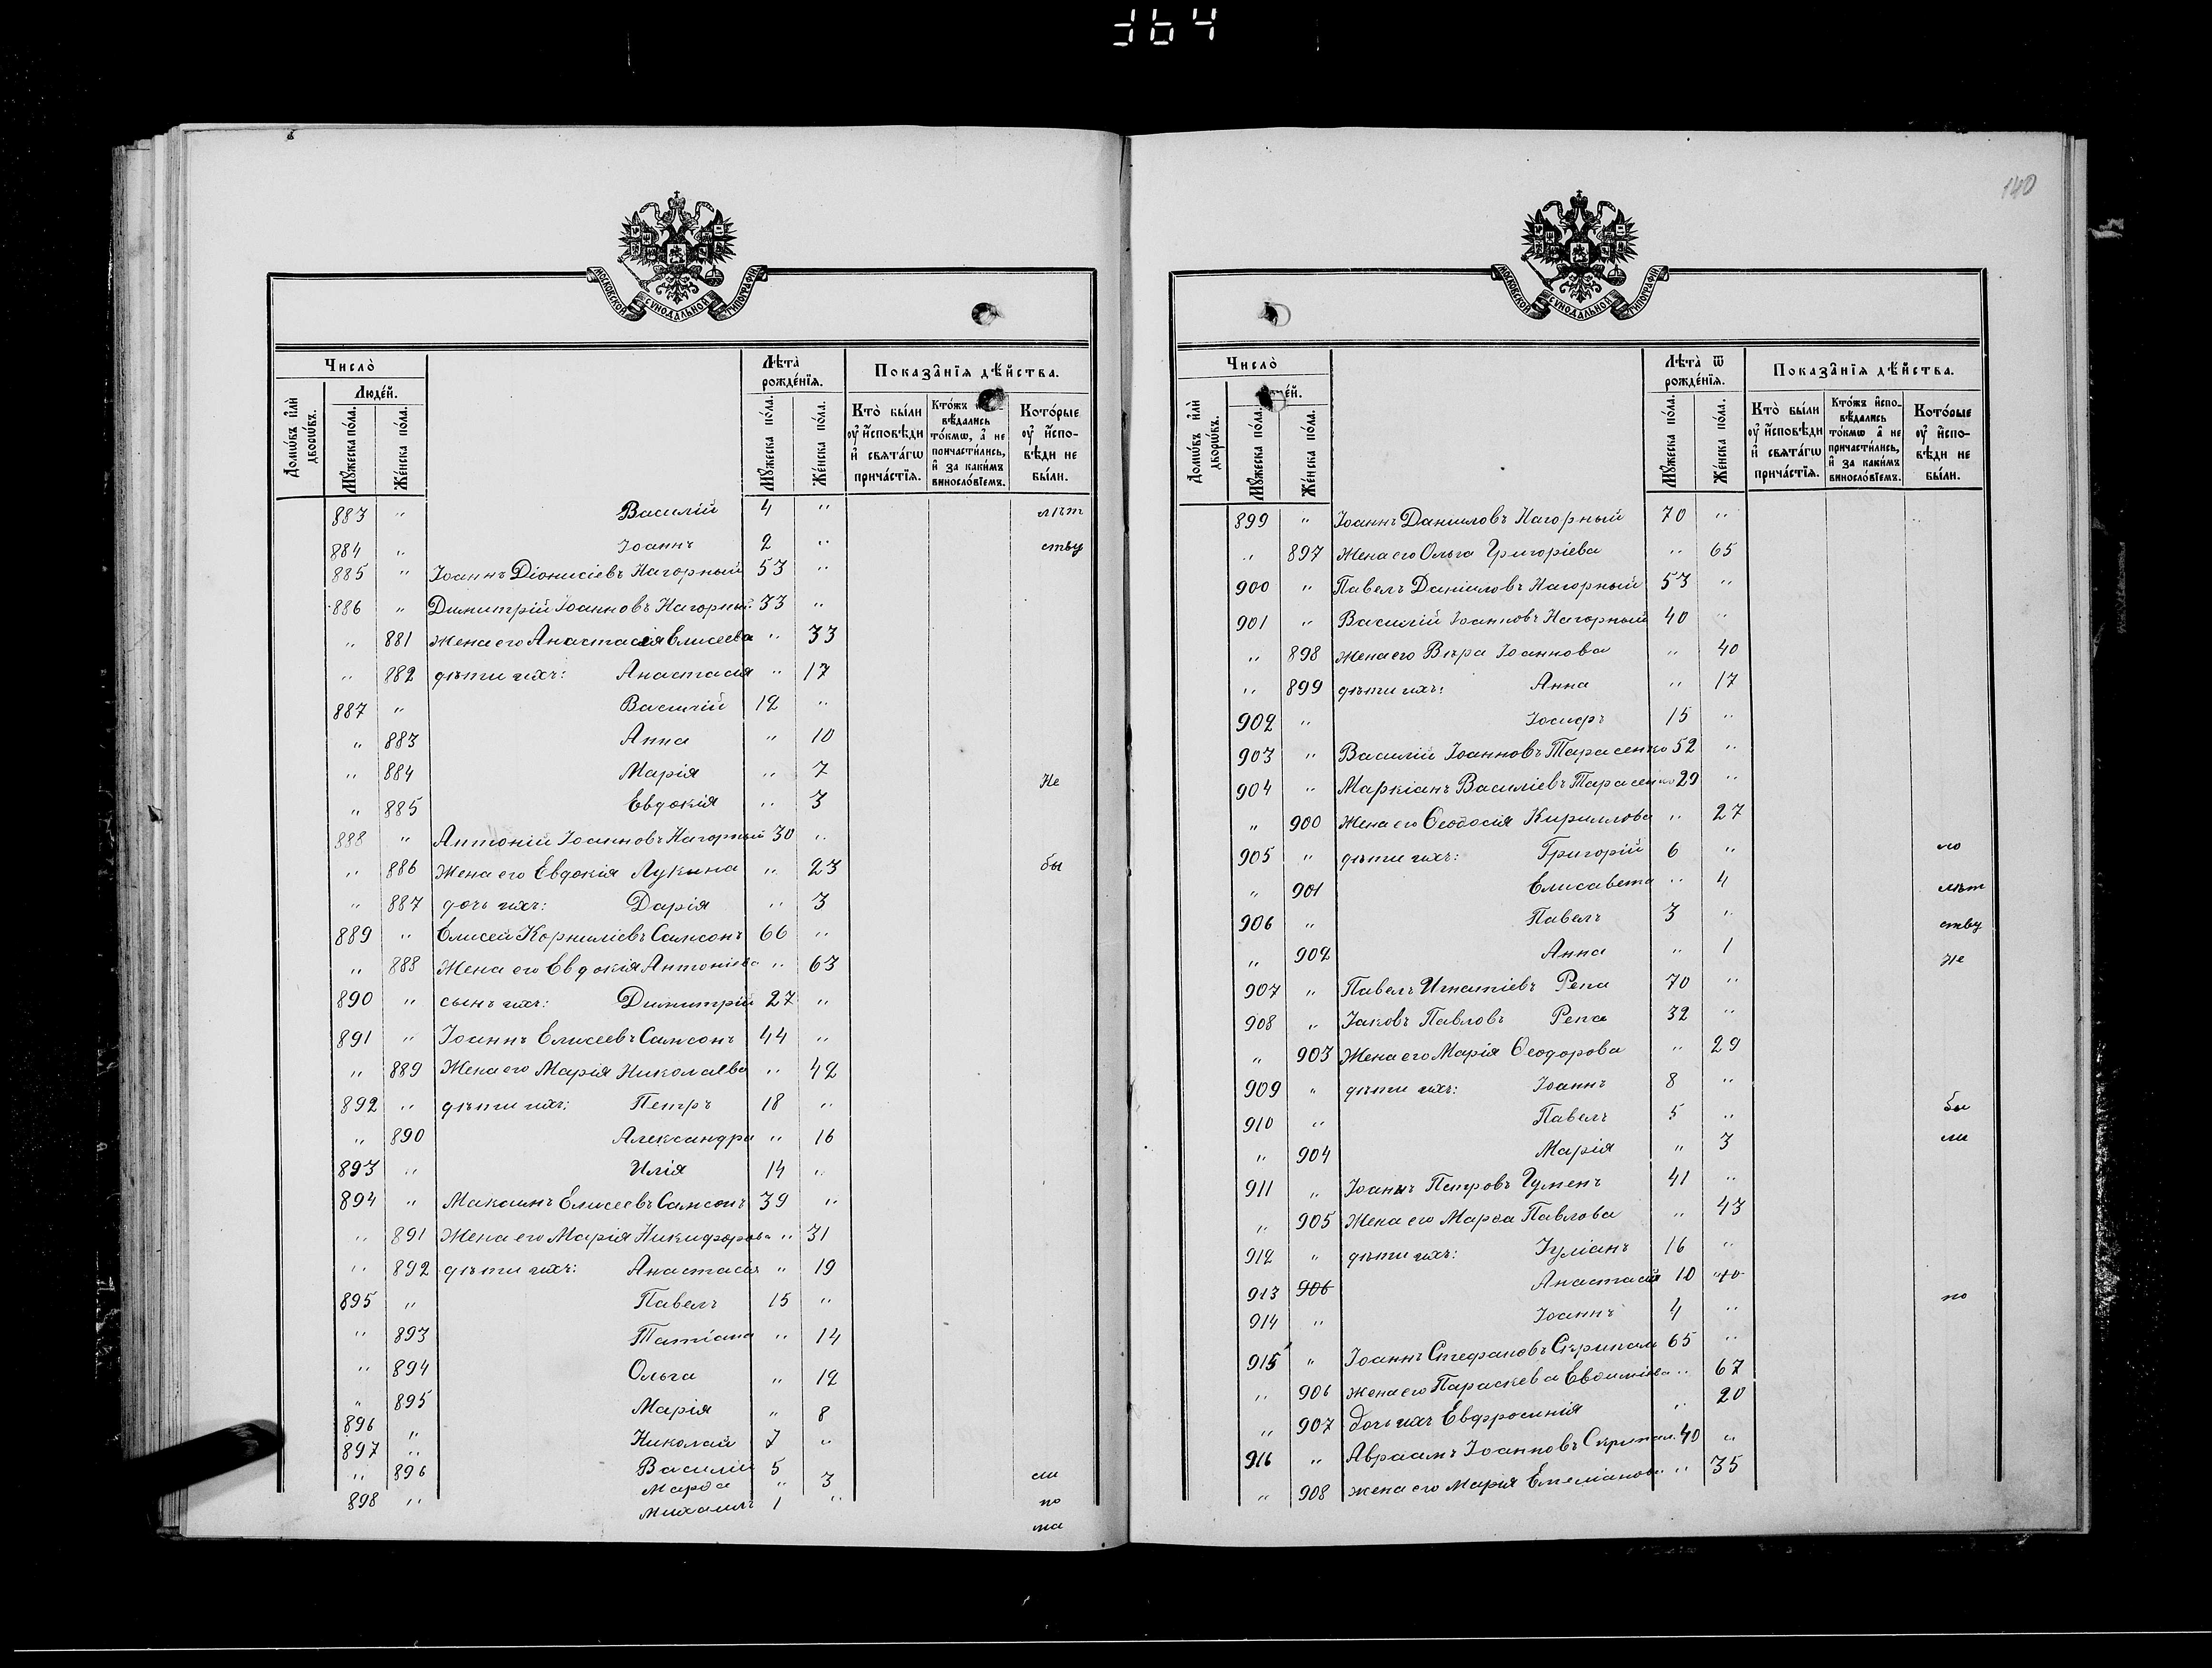 364
140
МОСКОВСКОЙ СѴНОДАЛЬНОЙ ТИПОГРАФІИ
Число̀
Людей.
Домѡвъ и҆лѝ дворѡвъ.
Мꙋжеска по́ла.
Же́нска по́ла.
Лѣта̀ рожде́нїѧ.
Мꙋжеска по́ла.
Же́нска по́ла.
Показа̑нїѧ дѣ́йства.
Кто̀ бы́ли оу҆ и҆сповѣди и҆ свѧта́гѡ прича́стїѧ.
Кто́жъ вѣ́дались то́кмѡ, а҆ не причасти́лись, и҆ за каки́мъ винослóвїемъ.
Кото́рые оу҆ и҆сповѣди не бы́ли.
883 " Василій 4 " лѣт
884 " Іоаннъ 2 " ству
885 " Іоаннъ Діонисіевъ Нагорный 53 "
886 " Димитрій Іоанновъ Нагорный 33 "
" 881 Жена его Анастасія Елисеева " 33
" 882 дѣти ихъ: Анастасія " 17
887 " Василій 12 "
" 883 Анна " 10
" 884 Марія " 7 Не
" 885 Евдокія " 3
888 " Антоній Іоанновъ Нагорный 30 "
" 886 Жена его Евдокія Лукина " 23 бы
" 887 дочь ихъ: Дарія " 3
889 " Елисей Корниліевъ Самсонъ 66 "
" 888 Жена его Евдокія Антоніева " 63
890 " сынъ ихъ: Димитрій 27 "
891 " Іоаннъ Елисеевъ Самсонъ 44 "
" 889 Жена его Марія Николаева " 42
892 " дѣти ихъ: Петръ 18 "
" 890 Александра " 16
893 " Илія 14 "
894 " Максимъ Елисеевъ Самсонъ 39 "
" 891 Жена его Марія Никифорова " 31
" 892 дѣти ихъ: Анастасія " 19
895 " Павелъ 15 "
" 893 Татіана " 14
" 894 Ольга " 12
" 895 Марія " 8
896 " Николай 7 "
897 " Василій 5 " ли
" 896 Марѳа " 3 по
898 " Михаилъ 1 " ма
Число̀
Людей.
Домѡвъ и҆лѝ дворѡвъ.
Мꙋжеска по́ла.
Же́нска по́ла.
Лѣта̀ ѿ рожде́нїѧ.
Мꙋжеска по́ла.
Же́нска по́ла.
Показа̑нїѧ дѣ́йства.
Кто̀ бы́ли оу҆ и҆сповѣди и҆ свѧта́гѡ прича́стїѧ.
Кто́жъ и҆спо-вѣ́дались то́кмѡ а҆ не причасти́лись, и҆ за каки́мъ винослóвїемъ.
Кото́рые оу҆ и҆спо-вѣди не бы́ли.
899 " Іоаннъ Даниловъ Нагорный 70 "
" 897 Жена его Ольга Григоріева " 65
900 " Павелъ Даніиловъ Нагорный 53 "
901 " Василій Іоанновъ Нагорный 40 "
" 898 Жена его Вѣра Іоаннова " 40
" 899 дѣти ихъ: Анна " 17
902 " Іосифъ 15 "
903 " Василій Іоанновъ Тарасенко 52 "
904 " Маркіанъ Василіевъ Тарасенко 29 "
" 900 Жена его Ѳеодосія Кириллова " 27
905 " дѣти ихъ: Григорій 6 " ло
" 901 Елисавета " 4 лѣт
906 " Павелъ 3 " ству
" 902 Анна " 1 не
907 " Павелъ Игнатіевъ Репа 70 "
908 " Іаковъ Павловъ Репа 32 "
" 903 Жена его Марія Ѳеодорова " 29
909 " дѣти ихъ: Іоаннъ 8 "
910 " Павелъ 5 " бы
" 904 Марія " 3 ли
911 " Іоаннъ Петровъ Гуменъ 41 "
" 905 Жена его Марѳа Павлова " 43
912 " дѣти ихъ: Іуліанъ 16 "
913 906 Анастасій 10 10
914 " Іоаннъ 4 " по
915 " Іоаннъ Стефановъ Скрипаль 65 "
" 906 Жена его Параскева Евѳиміева " 67
" 907 дочь ихъ Евфросинія " 20
916 " Авраамъ Іоанновъ Скрипал. 40 "
" 908 жена его Марія Емеліанова " 35